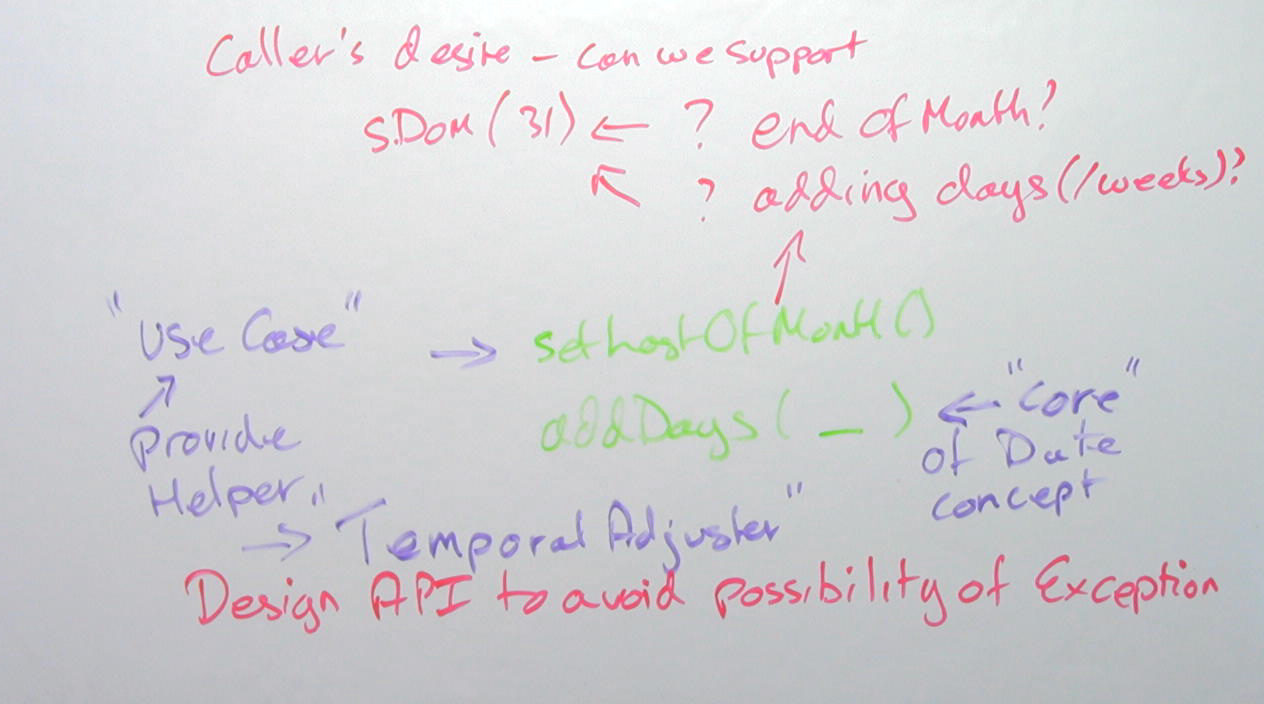 Caller's desire – can we support
s.DoM(31) ← ? end of Month?
↖ ? adding days(/weeks)?
↑
"Use Case" → setLastOfMonth()
↗
Provide
Helper
addDays( _ ) ← "Core"
of Date
concept
→ "Temporal Adjuster"
Design API to avoid possibility of Exception